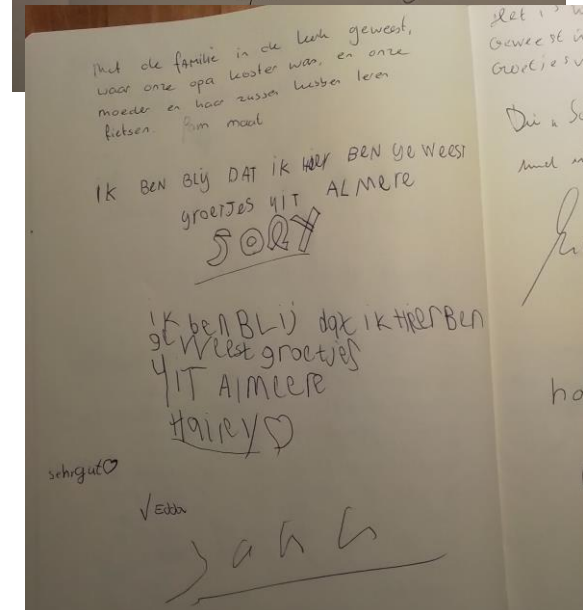 met de familie in de kerk geweest,
waar onze opa koster was, en onze
moeder en haar zussen hebben leren
fietsen. maal
IK BEN BLIJ DAT iK HIER BEN GEWEEST
groeTJes UIT ALMERE
ik ben BLIJ dat ik HIER BEN
geWeest groetjes
UIT AlMeere
Hailey♡
sehrgut♡
√Edda
Het is
Geweest
Groetjes